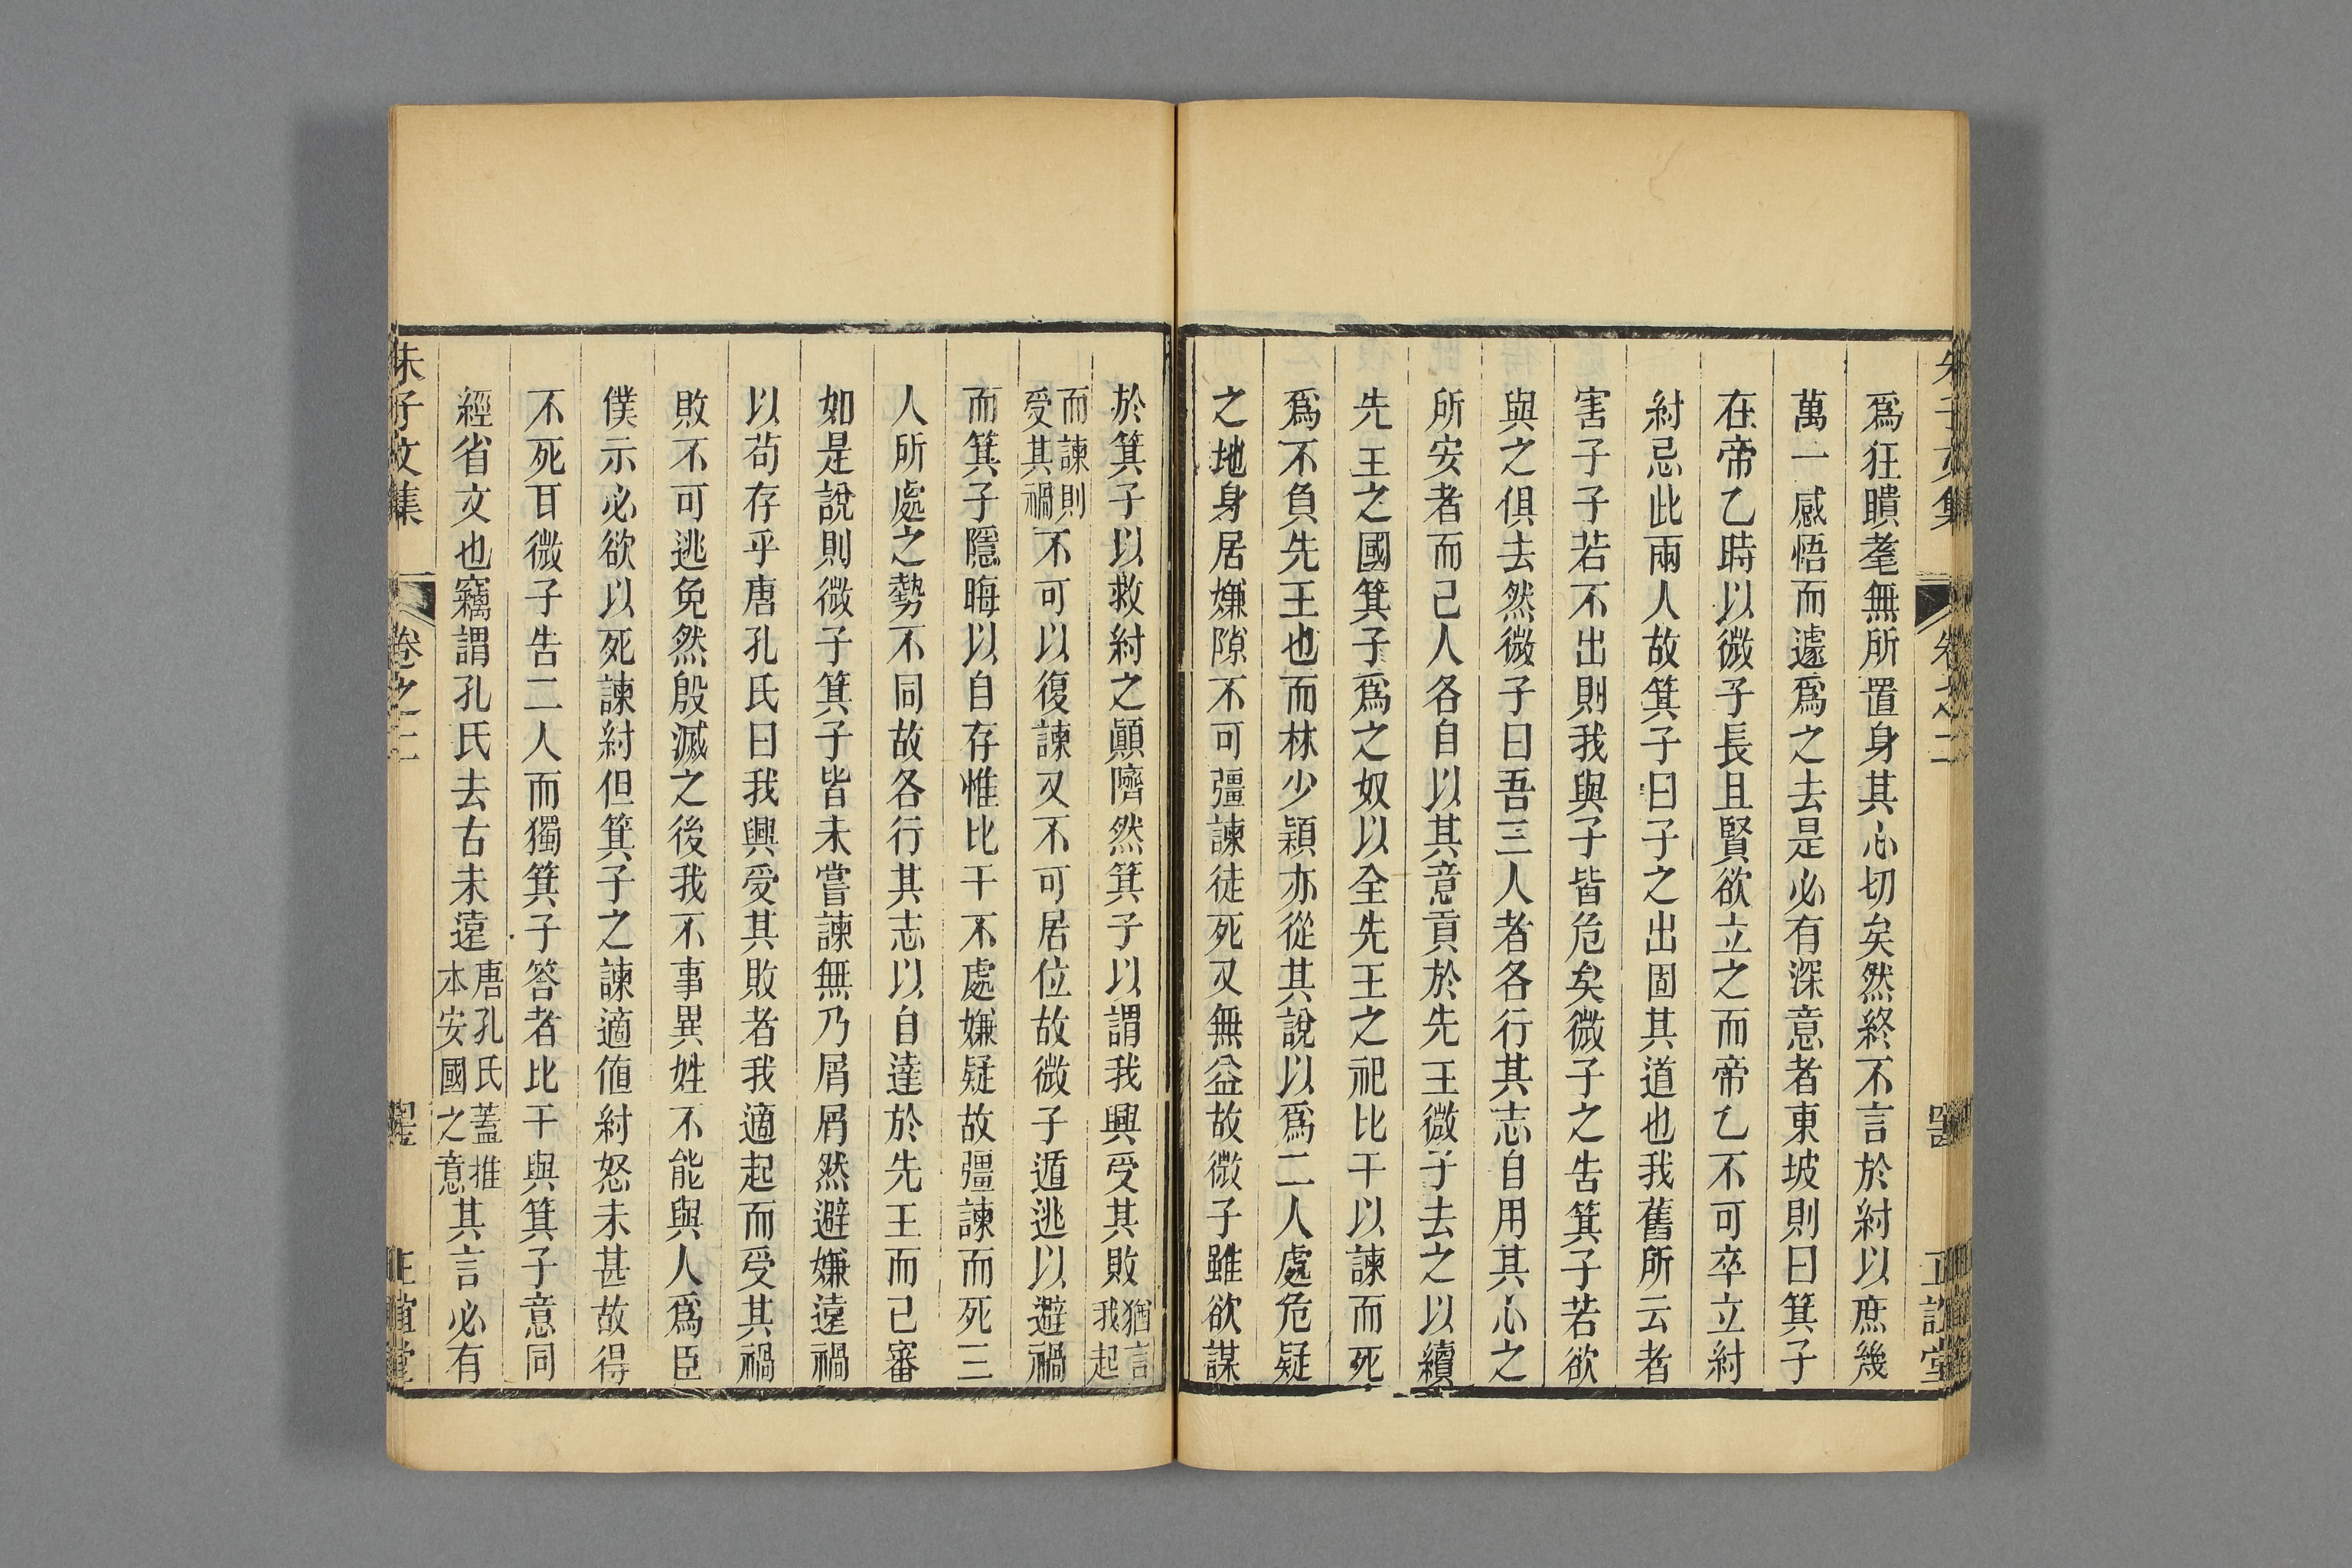 爲狂瞶耄無所置身其心切矣然終不言於紂以庶幾
萬一感悟而遽爲之去是必有深意者東坡則曰箕子
在帝乙時以微子長且賢欲立之而帝乙不可卒立紂
紂忌此兩人故箕子曰子之出固其道也我舊所云者
害子子若不出則我與子皆危矣微子之告箕子若欲
與之俱去然微子曰吾三人者各行其志自用其心之
所安者而已人各自以其意貢於先王微子去之以續
先王之國箕子爲之奴以全先王之祀比干以諫而死
爲不負先王也而林少穎亦從其說以爲二人處危疑
之地身居嫌隙不可彊諫徒死又無益故微子雖欲謀
於箕子以救紂之顚隮然箕子以謂我興受其敗猶言我起
而諫則受其禍不可以復諫又不可居位故微子遁逃以避禍
而箕子隱晦以自存惟比干不處嫌疑故彊諫而死三
人所處之勢不同故各行其志以自達於先王而已審
如是說則微子箕子皆未嘗諫無乃屑屑然避嫌遠禍
以苟存乎唐孔氏曰我興受其敗者我適起而受其禍
敗不可逃免然殷滅之後我不事異姓不能與人爲臣
僕示必欲以死諫紂但箕子之諫適値紂怒未甚故得
不死耳微子告二人而獨箕子答者比干與箕子意同
經省文也竊謂孔氏去古未遠唐孔氏蓋推本安國之意其言必有
朱子文集 卷之二